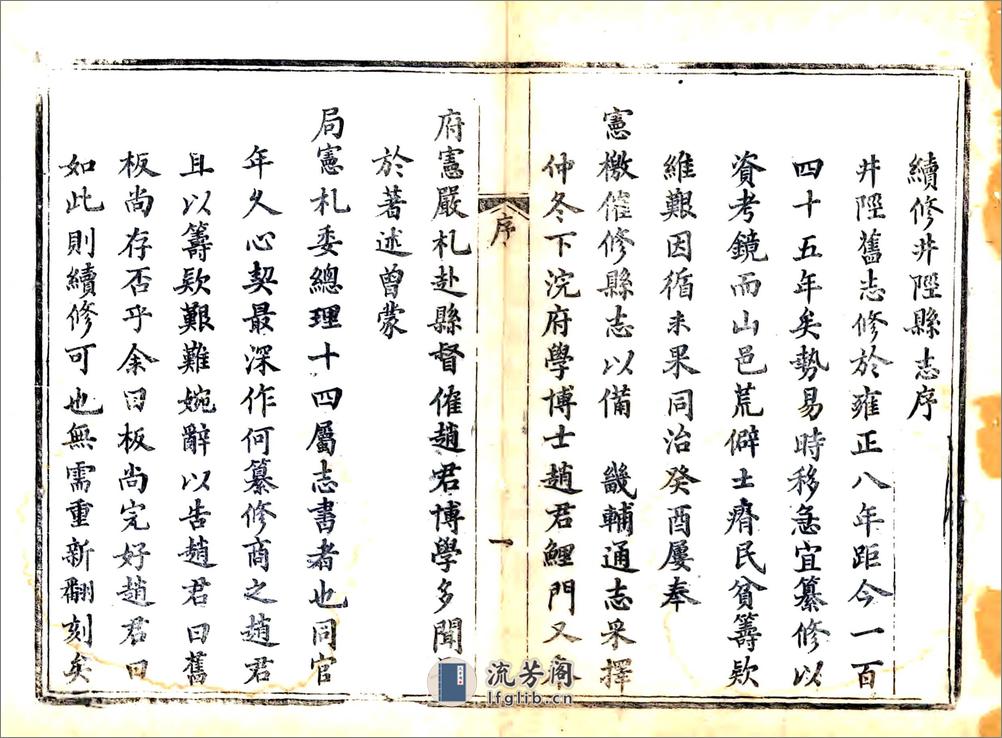 續修井陘縣志序
井陘舊志修於雍正八年距今一百
四十五年矣勢易時移急宜纂修以
資考鏡而山邑荒僻土瘠民貧籌欵
維艱因循未果同治癸酉屢奉
憲檄催修縣志以備 畿輔通志采擇
仲冬下浣府學博士趙君鯉門又
序
一
府憲嚴札赴縣督催趙君博學多聞
於著述曾蒙
局憲札委總理十四屬志書者也同官
年久心契最深作何纂修商之趙君
且以籌欵艱難婉辭以告趙君曰舊
板尚存否乎余曰板尚完好趙君曰
如此則續修可也無需重新翻刻矣
流芳阁
lfglib.cn